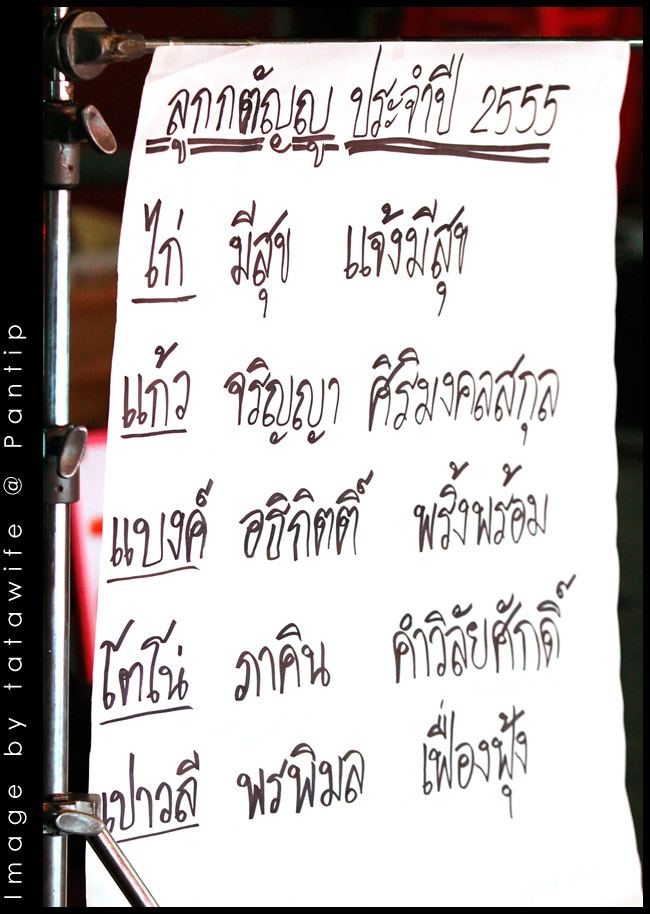 ลูกกตัญญู ประจำปี 2555
ไก่ มีสุข แจ้งมีสุข
แก้ว จริญญา ศิริมงคลสกุล
แบงค์ อธิกิตติ์ พริ้งพร้อม
โตโน่ ภาคิน คำวิลัยศักดิ์
เปาวลี พรพิมล เฟื่องฟุ้ง
Image by tatawife @ Pantip